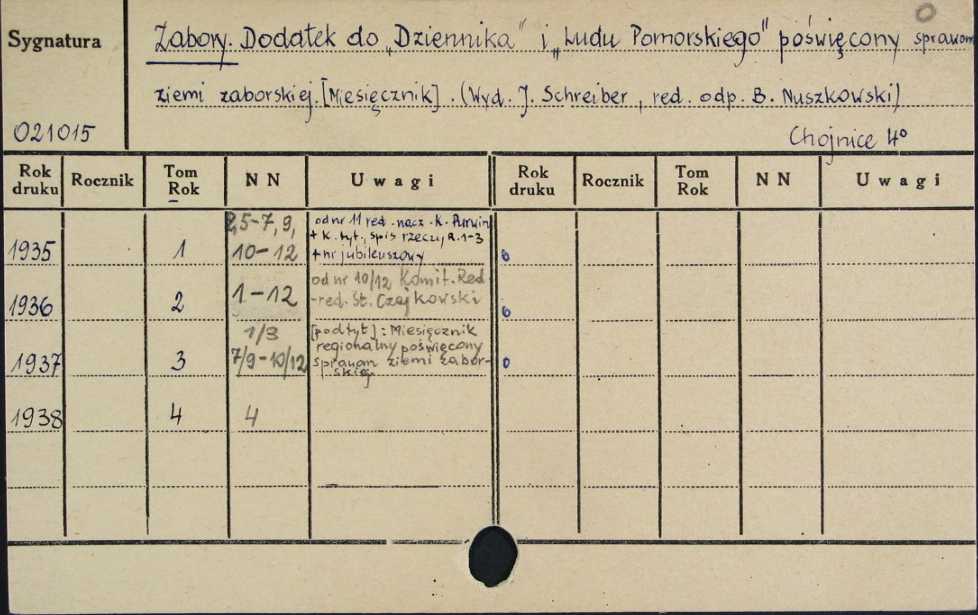 Sygnatura
Zabory. Dodatek do „Dziennika" i „Ludu Pomorskiego" poświęcony sprawom
ziemi zaborskiej. [Miesięcznik]. (Wyd. J. Schreiber, red. odp. B. Nuszkowski)
021015
Chojnice 4°
Rok druku Rocznik Tom Rok N N Uwagi Rok druku Rocznik Tom Rok N N Uwagi
1935 1 2,5-7,9, 10-12 od nr 11 red. nacz. K. + K. tyt., spis rzeczy, R. 1-3 + nr jubileuszowy 0
1936 2 1-12 od nr 10/12 Komit. Red. -red. St. Czajkowski 0
1937 3 1/3 7/9-10/12 [podtyt]: Miesięcznik regionalny poświęcony sprawom ziemi zabor-skiej 0
1938 4 4